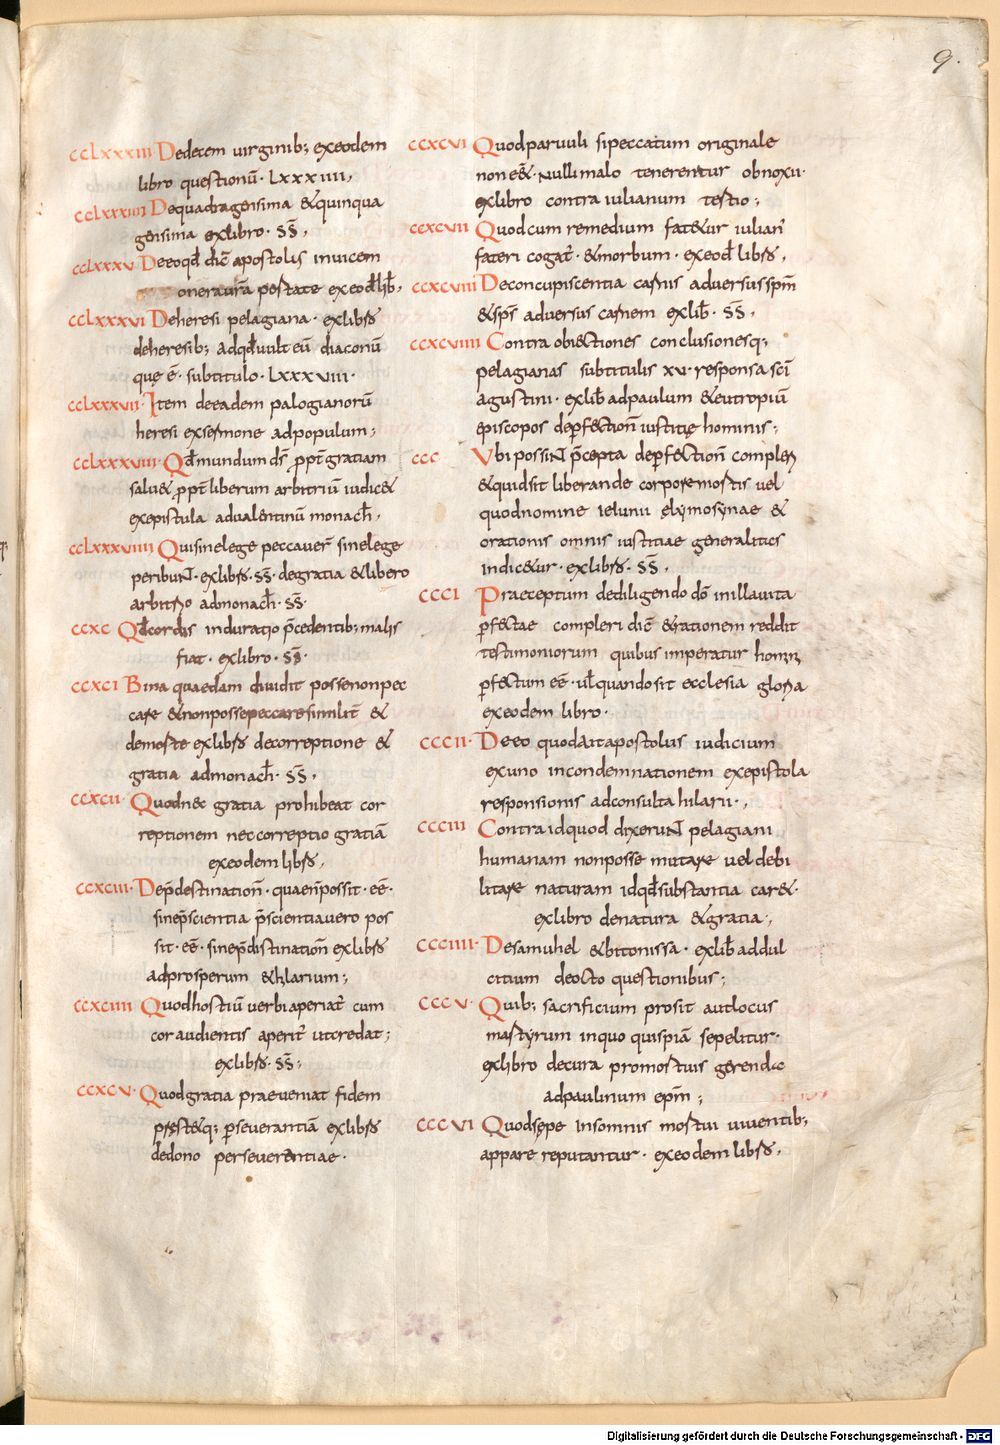 9.
CCLXXXIII Dedecem uirginib; exeodem
libro questionū · LXXXIIII,
CCLXXXIIII Dequadragensima &quinqua
gensima exlibro · s̄s̄,
CCLXXXV Deeoqđ dic̄ apostolis inuicem
onera ur̄a portate exeodē lib̄,
CCLXXXVI Deheresi pelagiana · exlib s̄s̄
deheresib; adqđuult eū diaconū
quę ē · subtitulo · LXXXVIII ·
CCLXXXVII · Item deeadem palogianorū
heresi exsermone adpopulum;
CCLXXXVIII · Qđmundum dš ꝓpt̄ gratiam
salu& ꝓpt̄ liberum arbitriū iudic&
exepistula adualentinū monacħ,
CCLXXXVIIII Quisinelege peccauer̄ sinelege
peribunt · exlib s̄s̄ · degratia &libero
arbitrio admonacħ · s̄s̄ ·
CCXC Qđcordis induratio p̄cedentib; malis
fiat · exlibro · s̄s̄ ·
CCXCI Bina quaedam diuidit possenonpec
care &nonpossepeccaresimilit̄ &
demorte exlib s̄s̄ decorreptione &
gratia admonacħ · s̄s̄,
CCXCII · Quodnec gratia prohibeat cor
reptionem neccorreptio gratiā
exeodem lib s̄s̄,
CCXCIII · Dep̄destination̄ · quaen̄possit · eē ·
sinep̄scientia p̄scientiauero pos
sit · eē · sinep̄distination̄ exlib s̄s̄
adprosperum &hlarium;
CCXCIIII Quodhostiū uerbi aperiat̄ cum
cor audientis aperit̄ utcredat;
exlib s̄s̄ · s̄s̄;
CCXCV · Quodgratia praeueniat fidem
prest&q; ꝑseuerantiā exlib s̄s̄
dedono perseuerentiae ·
CCXCVI Quodparuuli sipeccatum originale
non e& · nullimalo tenerentur obnoxii ·
exlibro contra iulianum tertio;
CCXCVII Quodcum remedium fat&ur iulian̄
fateri cogat̄ · &morbum · exeođ lib s̄s̄,
CCXCVIII Deconcupiscentia carnis aduersus spm̄
&sps̄ aduersus carnem exlib̄ · s̄s̄,
CCXCVIIII Contra obiectiones conclusionesq;
pelagianas subtitulis xv · responsa sci̅
agustini · exlib̄ adpaulum &eutropiū
episcopos deꝑfection̄ iustitię hominis;
CCC Vbi possint p̄cepta deꝑfection̄ compleri
&quidsit liberande corporemortis uel
quodnomine ieiunii elymosynae &
orationis omnis iustitiae generalites
indic&ur · exlib s̄s̄ · s̄s̄,
CCCI Praeceptum dediligendo dō inillauita
ꝑfectae compleri dic̄ &rationem reddit
testimoniorum quibus imperatur homini
ꝑfectum eē · ul̄ quandosit ecclesia gloria
exeodem libro ·
CCCII · Deeo quodaitapostolus iudicium
exuno incondemnationem exepistola
responsionis adconsulta hilarii ·,
CCCIII Contra idquod dixerunt pelagiani
humanam nonposse mutare uel debi
litare naturam idqđsubstantia car& ·
exlibro denatura &gratia ·,
CCCIIII · Desamuhel &bitonissa · exlib̄ addul
citium deocto questionibus;
CCCV · Quib; sacrificium prosit autlocus
martyrum inquo quispiā sepelitur ·
exlibro decura promortuis gerendae
adpaulinum epm̄;
CCCVI Quodsępe insomnis mortui uiuentib;
appare reputantur · exeodem lib s̄s̄,
Digitalisierung gefördert durch die Deutsche Forschungsgemeinschaft - DFG